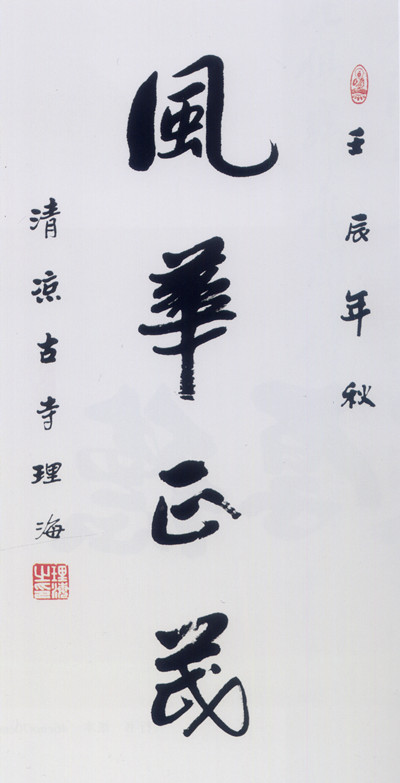 壬辰年秋
風華正茂
清涼古寺理海
理海之印